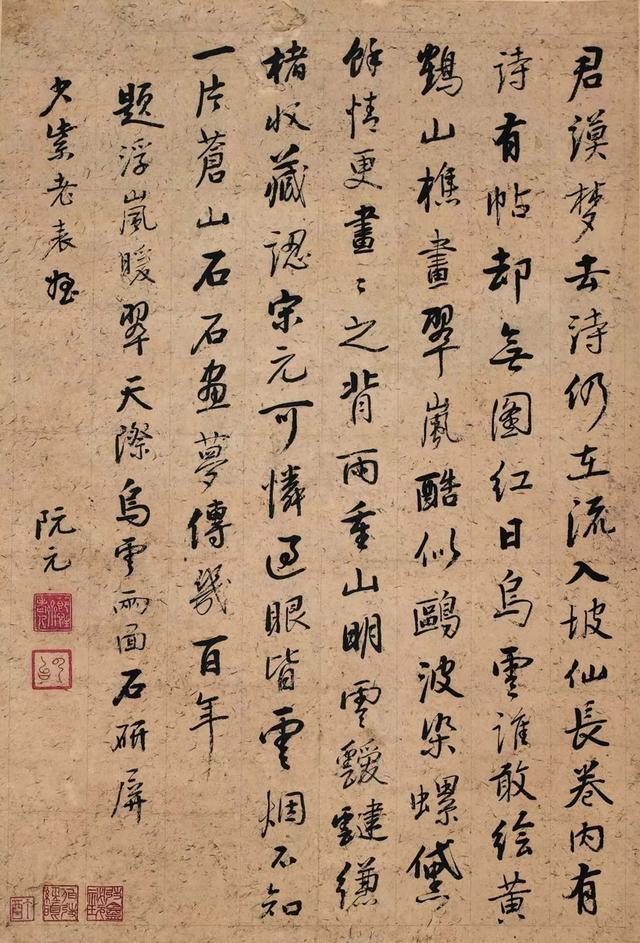 君谟梦去诗仍在流入坡仙長卷内有
诗有帖却無图红日烏雲誰敢绘黄
鶴山樵畫翠嵐酷似鷗波染螺黛
餘情更畫畫之背兩重山明雲靉靆縑
楮收藏認宋元可憐過眼皆雲烟不知
一片蒼山石石画夢傳幾百年
題浮嵐暖翠天際烏雲兩面石研屏
少紫老表姪
阮元